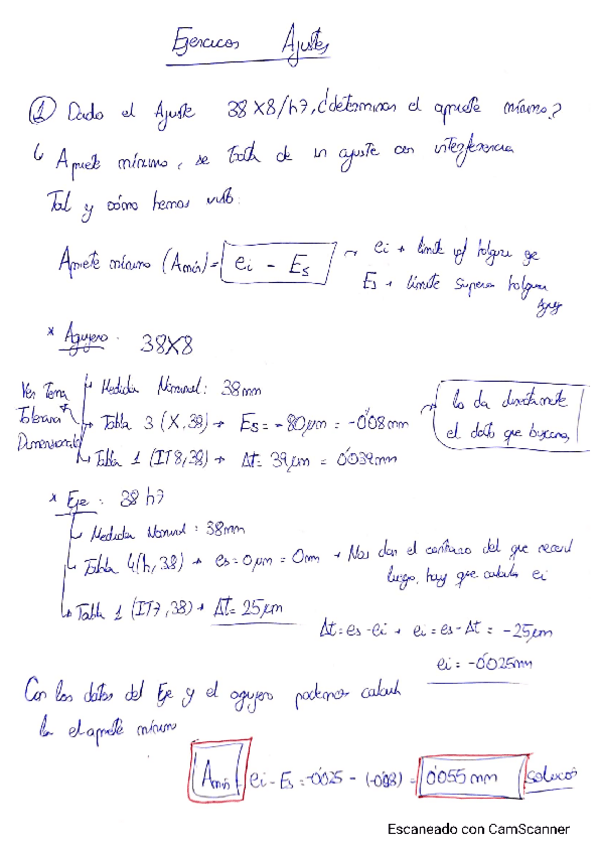 Ejercicios Ajustes
① Dado el Ajuste 38 X8/h7, ¿determinar el apriete mínimo?
↳ Apriete mínimo, se trata de un ajuste con interferencia
Tal y cómo hemos visto:
Apriete mínimo (Amín) = ei - Es
ei → límite inf holgura eje
Es → límite superior holgura
* Agujero: 38X8
Ver Tema Tolerancia Dimensional
Medida Nominal: 38mm
Tabla 3 (X,38) → Es = -80µm = -0'08mm
Tabla 1 (IT8,38) → Δt = 39µm = 0'039mm
lo da directamente
el dato que buscamos,
* Eje: 38 h7
Medida Nominal: 38mm
Tabla 4 (h,38) → es = 0µm = 0mm → Nos dan el contrario del que
luego, hay que calcular ei
Tabla 1 (IT7,38) → Δt = 25µm
Δt = es - ei → ei = es - Δt = -25µm
ei = -0'025mm
Con los datos del Eje y el agujero podemos calcular
el apriete mínimo
Amín = ei - Es = -0'025 - (-0'08) = 0'055 mm
Escaneado con CamScanner